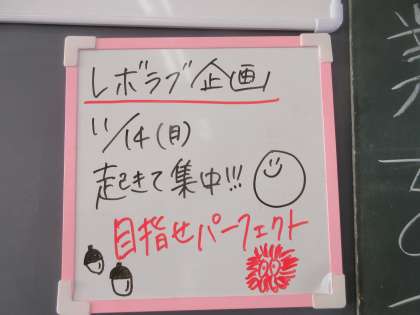 レボラブ企画
11/14(月)
起きて集中!!!
目指せパーフェクト